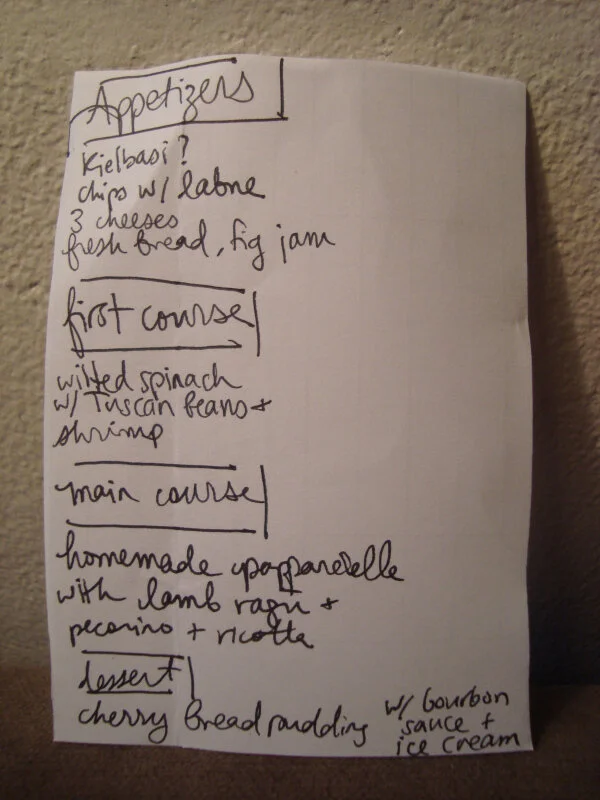 Appetizers
Kielbasi?
chips w/ labne
3 cheeses
fresh bread, fig jam
first course
wilted spinach
w/ Tuscan beans +
shrimp
main course
homemade papparedelle
with lamb ragu +
pecorino + ricotta
dessert
cherry bread pudding w/ bourbon
sauce +
ice cream